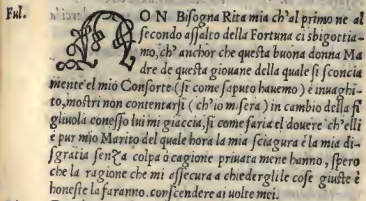 Ful. NON Bisogna Rita mia ch'al primo ne al
secondo assalto della Fortuna ci sbigottia-
mo, ch' anchor che questa buona donna Ma
dre de questa giouane della quale si sconcia
mente'el mio Consorte (si come saputo hauemo) è inuaghi-
to, mostri non contentarsi (ch'io misera) in cambio della fi
gliuola conesso lui mi giaccia, si come saria el douere ch'elli
è pur mio Marito del quale hora la mia sciagura è la mia di-
sgratia senza colpa ò cagione priuata mene hanno, spero
che la ragione che mi assecura a chiederglile cose giuste è
honeste la faranno. conscendere ai uolte mei.